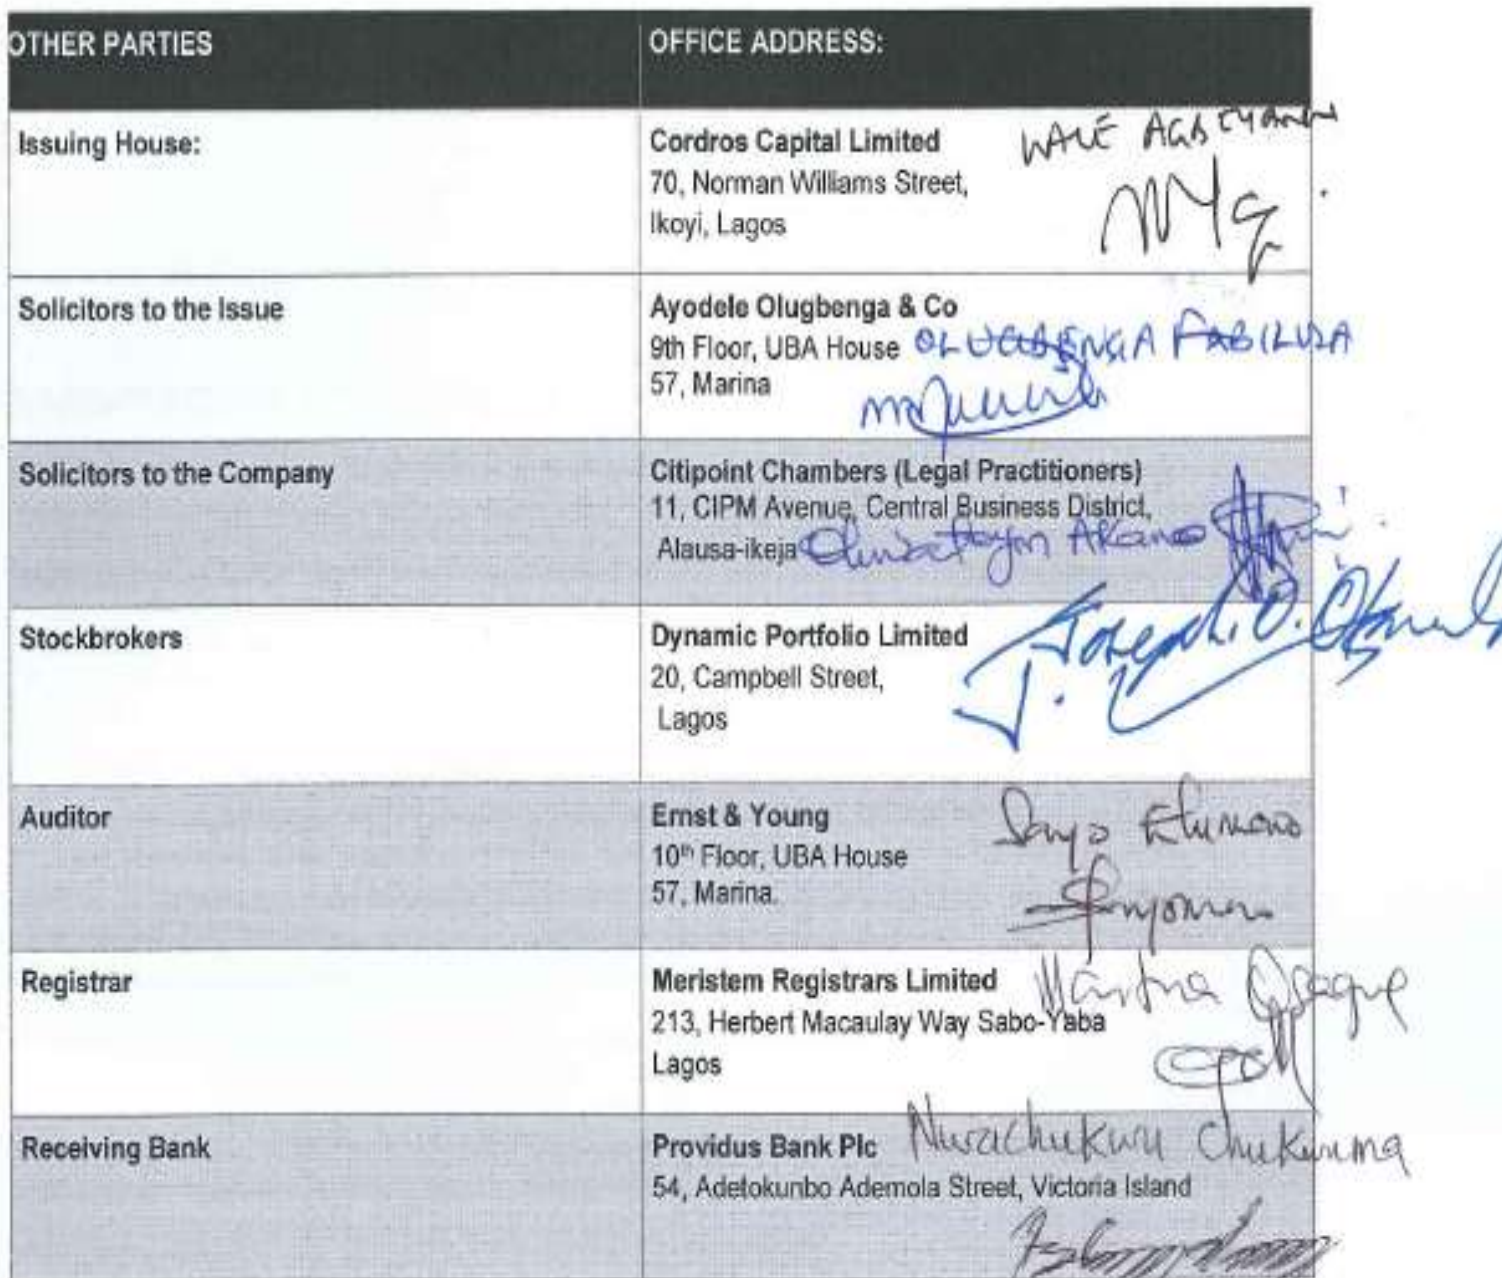 OTHER PARTIES
OFFICE ADDRESS:
Issuing House:
Cordros Capital Limited
70, Norman Williams Street,
Ikoyi, Lagos
WALE
Solicitors to the Issue
Ayodele Olugbenga & Co
9th Floor, UBA House
57, Marina
OLUGBENGA
Solicitors to the Company
Citipoint Chambers (Legal Practitioners)
11, CIPM Avenue, Central Business District,
Alausa-ikeja
Stockbrokers
Dynamic Portfolio Limited
20, Campbell Street,
Lagos
Joseph. O.
Auditor
Ernst & Young
10th Floor, UBA House
57, Marina.
Registrar
Meristem Registrars Limited
213, Herbert Macaulay Way Sabo-Yaba
Lagos
Receiving Bank
Providus Bank Plc
54, Adetokunbo Ademola Street, Victoria Island
Nwachukwu Chukwuma